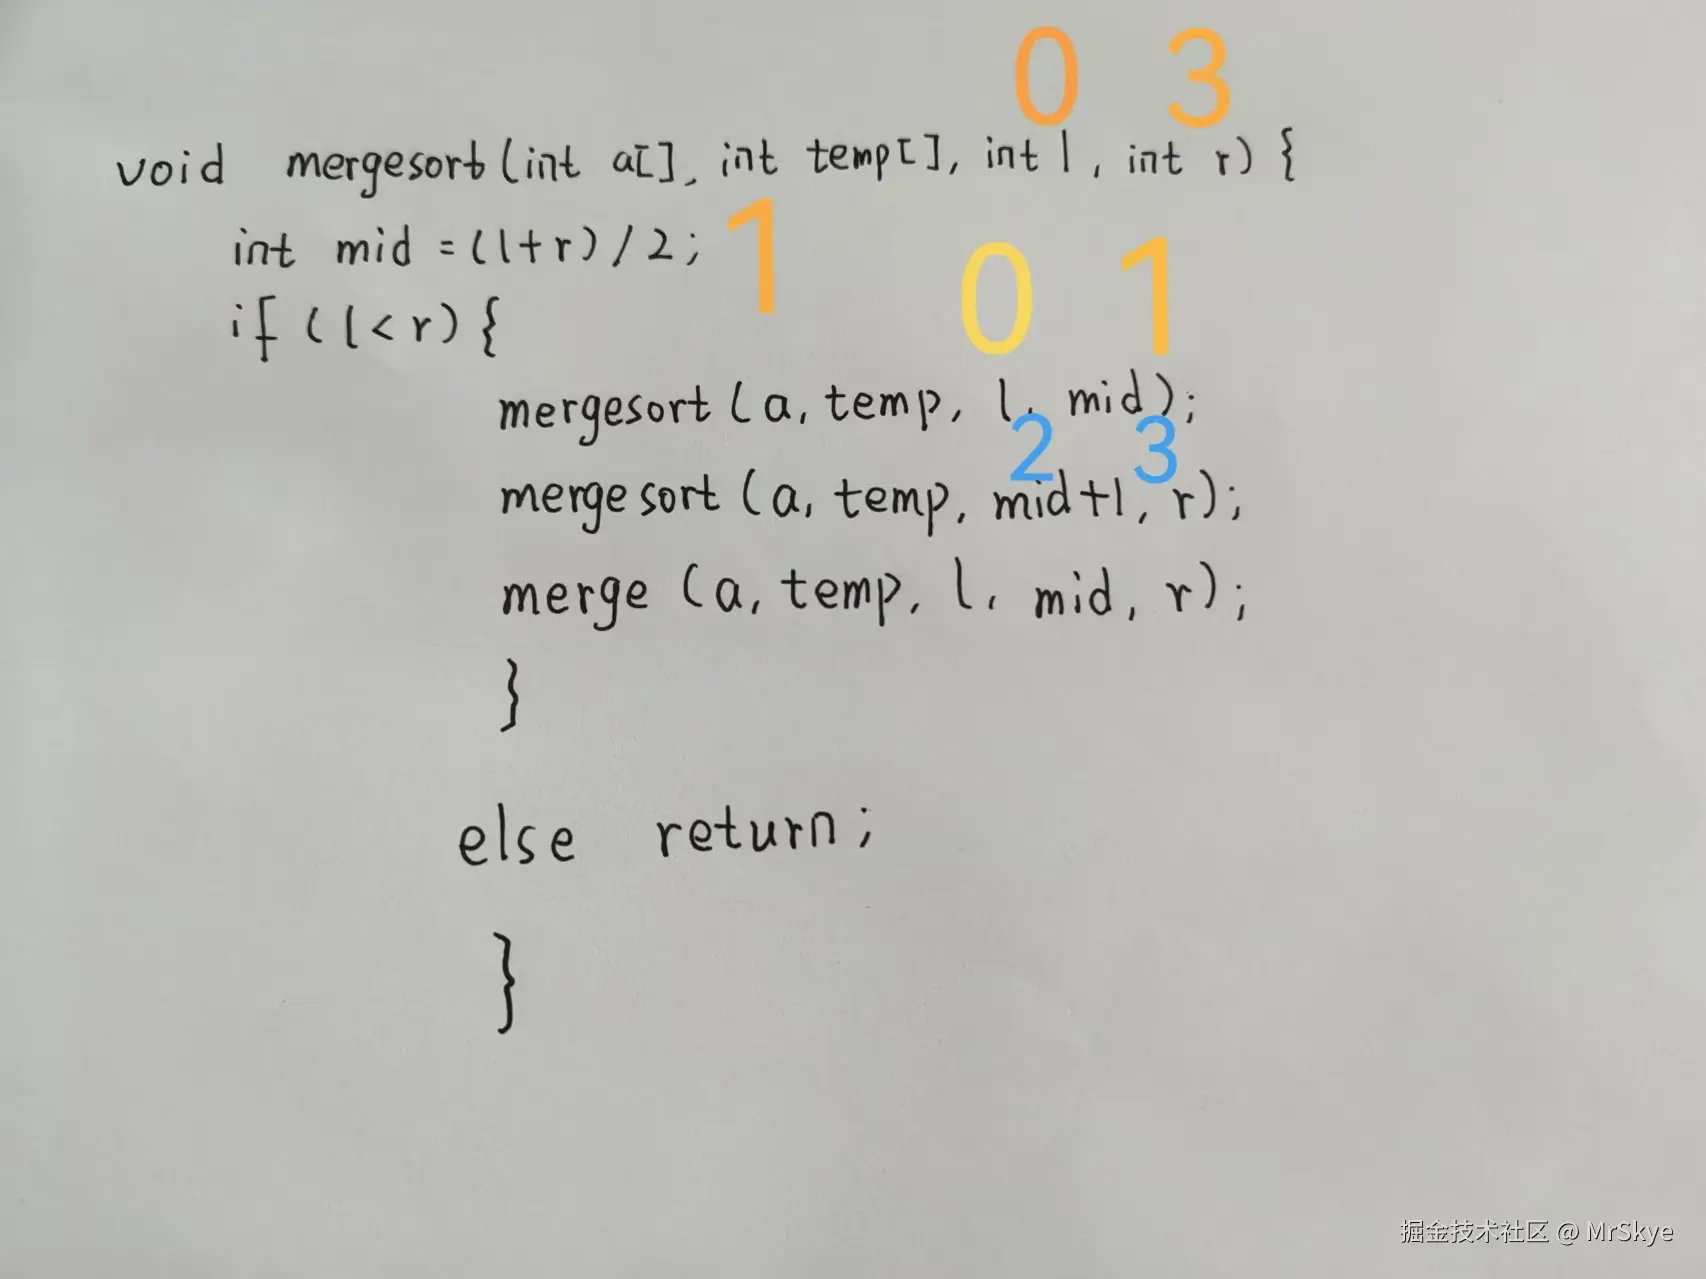 0 3
void mergesort(int a[], int temp[], int l, int r) {
int mid = (l+r)/2; 1
0 1
if (l<r) {
mergesort(a, temp, l, mid);
2 3
mergesort(a, temp, mid+1, r);
merge(a, temp, l, mid, r);
}
else return;
}
掘金技术社区 @ MrSkye